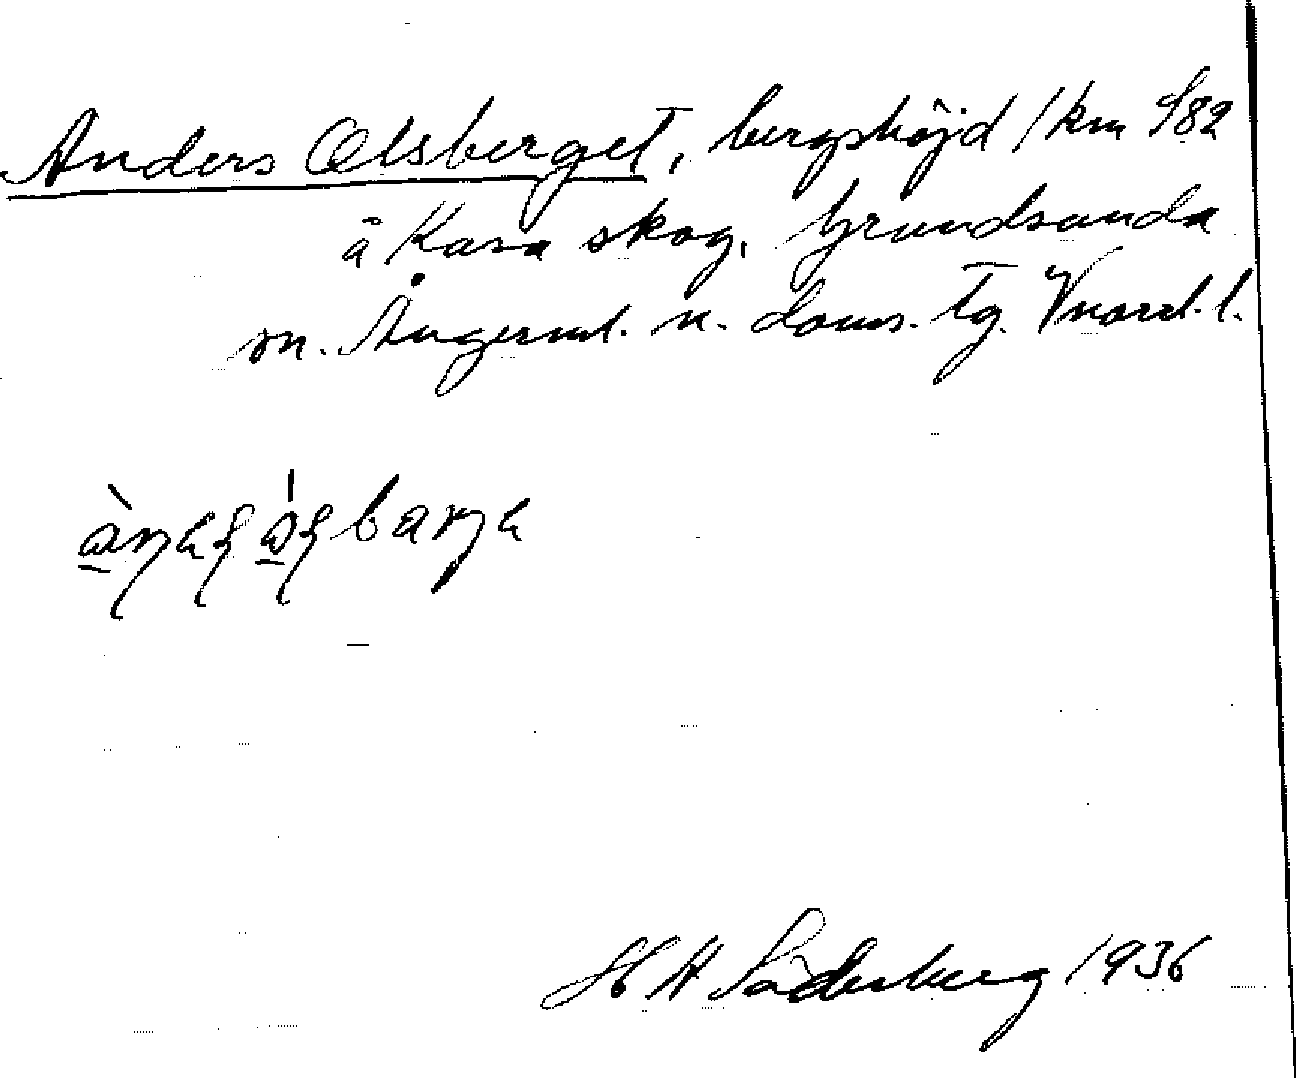 Anders Olsberget, bergshöjd 1 km S82
å Kasa skog, Grundsunda
sn. Ångerml. n. doms. Tg. Vnorrl. l.
H A Söderberg 1936